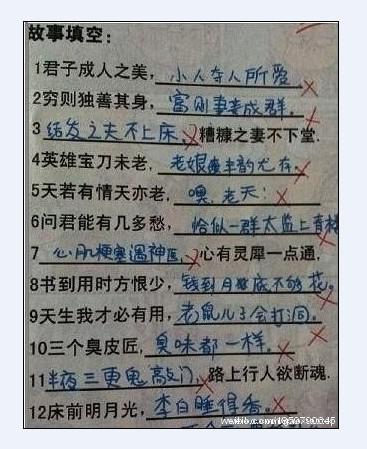 故事填空:
1君子成人之美，小人夺人所爱
2穷则独善其身，富则妻妾成群.
3结发之夫不上床，糟糠之妻不下堂.
4英雄宝刀未老，老娘丰韵尤存.
5天若有情天亦老，噢,老天:
6问君能有几多愁，恰似一群太监上青楼
7心肌梗塞遇神医，心有灵犀一点通.
8书到用时方恨少，钱到月底不够花.
9天生我才必有用，老鼠儿子会打洞.
10三个臭皮匠，臭味都一样.
11半夜三更鬼敲门，路上行人欲断魂.
12床前明月光，李白睡得香.